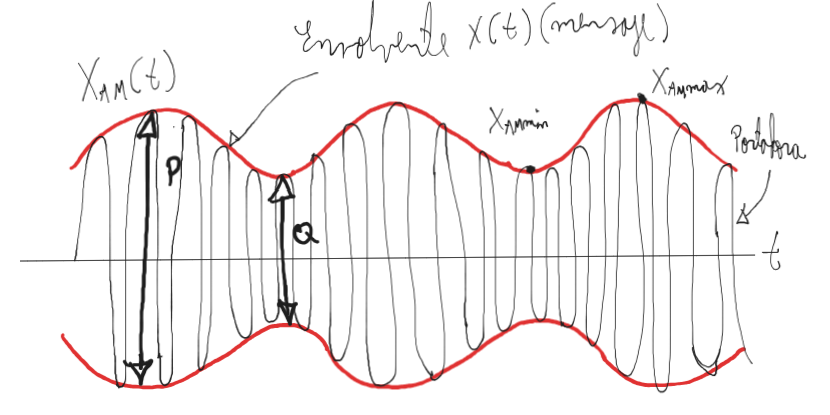 Envolvente X(t) (mensaje)
X_AM(t)
X_AMmax
X_AMmin
Portadora
P
Q
t